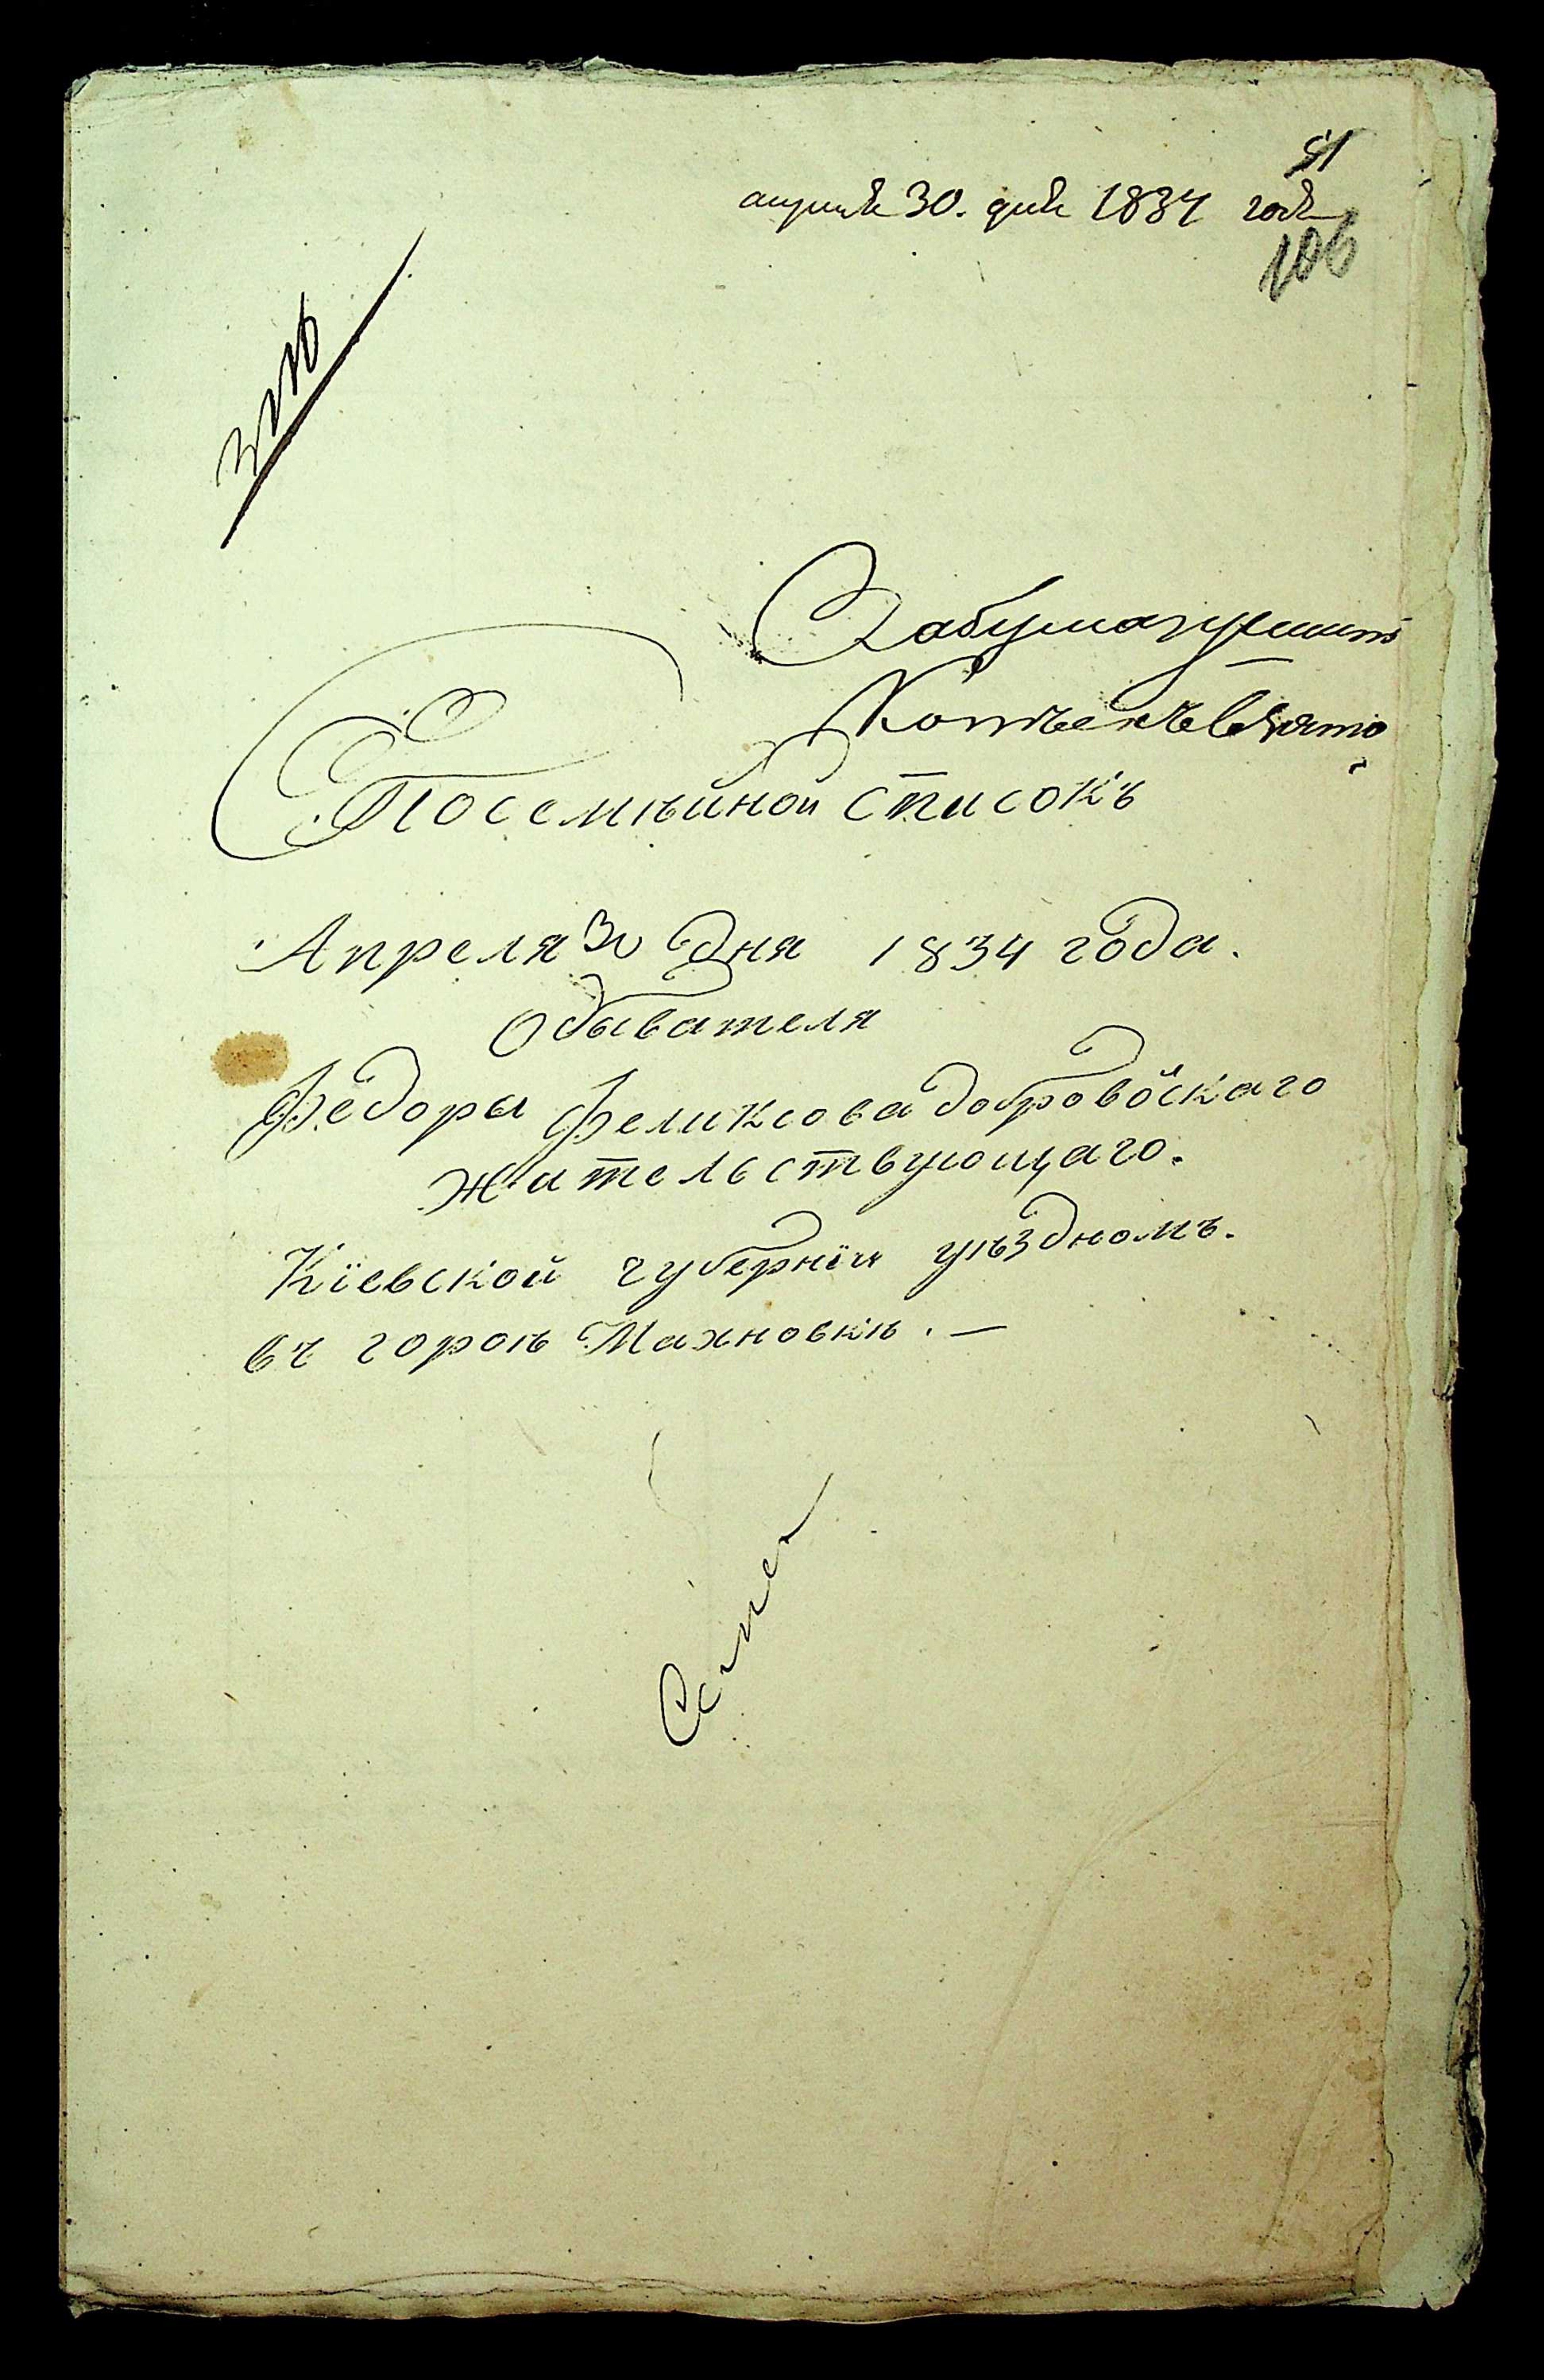 51
апреля 30. дня 1834 года
106
забумагу гешт
копъекъ взято
Посемѣйной списокъ
Апреля 30 дня 1834 года.
Обывателя
Федоры Феликсова добровойскаго
жительствующаго.
Кіевской губерніи уѣздномъ.
въ гороѣ Махновкѣ. —